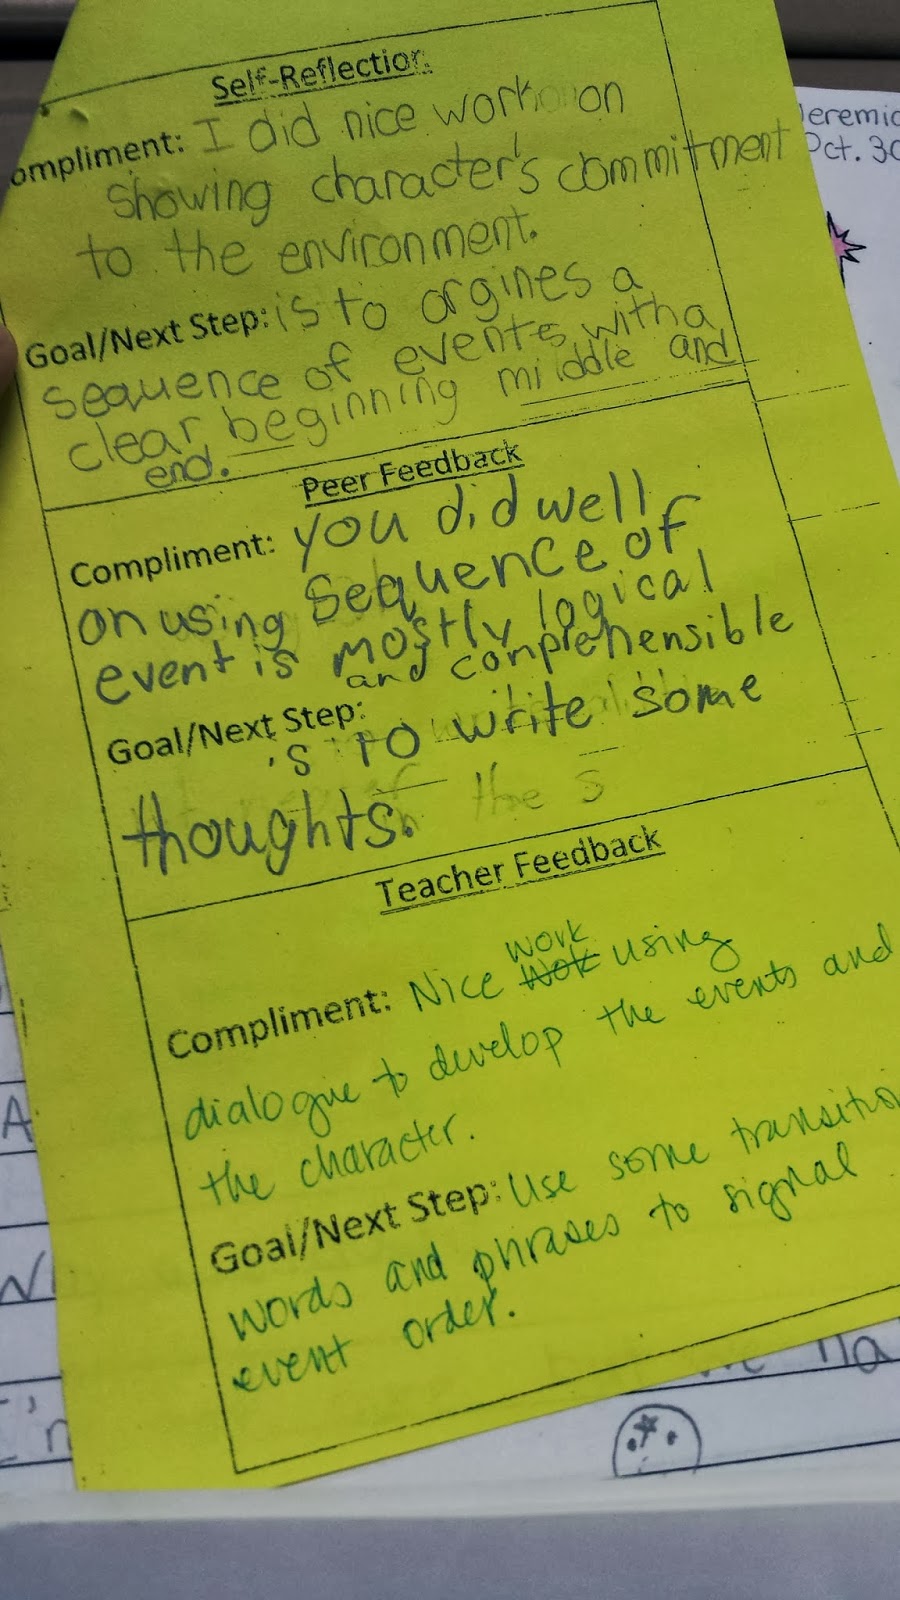 Self-Reflection
ompliment: I did nice work on
showing character's commitment
to the environment.
Goal/Next Step: is to orgines a
sequence of events with a
clear, beginning middle and
end.
Peer Feedback
Compliment: you did well
on using sequence of
event is mostly logical
and comprehensible
Goal/Next Step:
is to write some
thoughts. the s
Teacher Feedback
work
Compliment: Nice wok using
dialogue to develop the events and
the character.
Goal/Next Step: Use some transitio
words and phrases to signal
event order.
eremic
Oct. 30
A